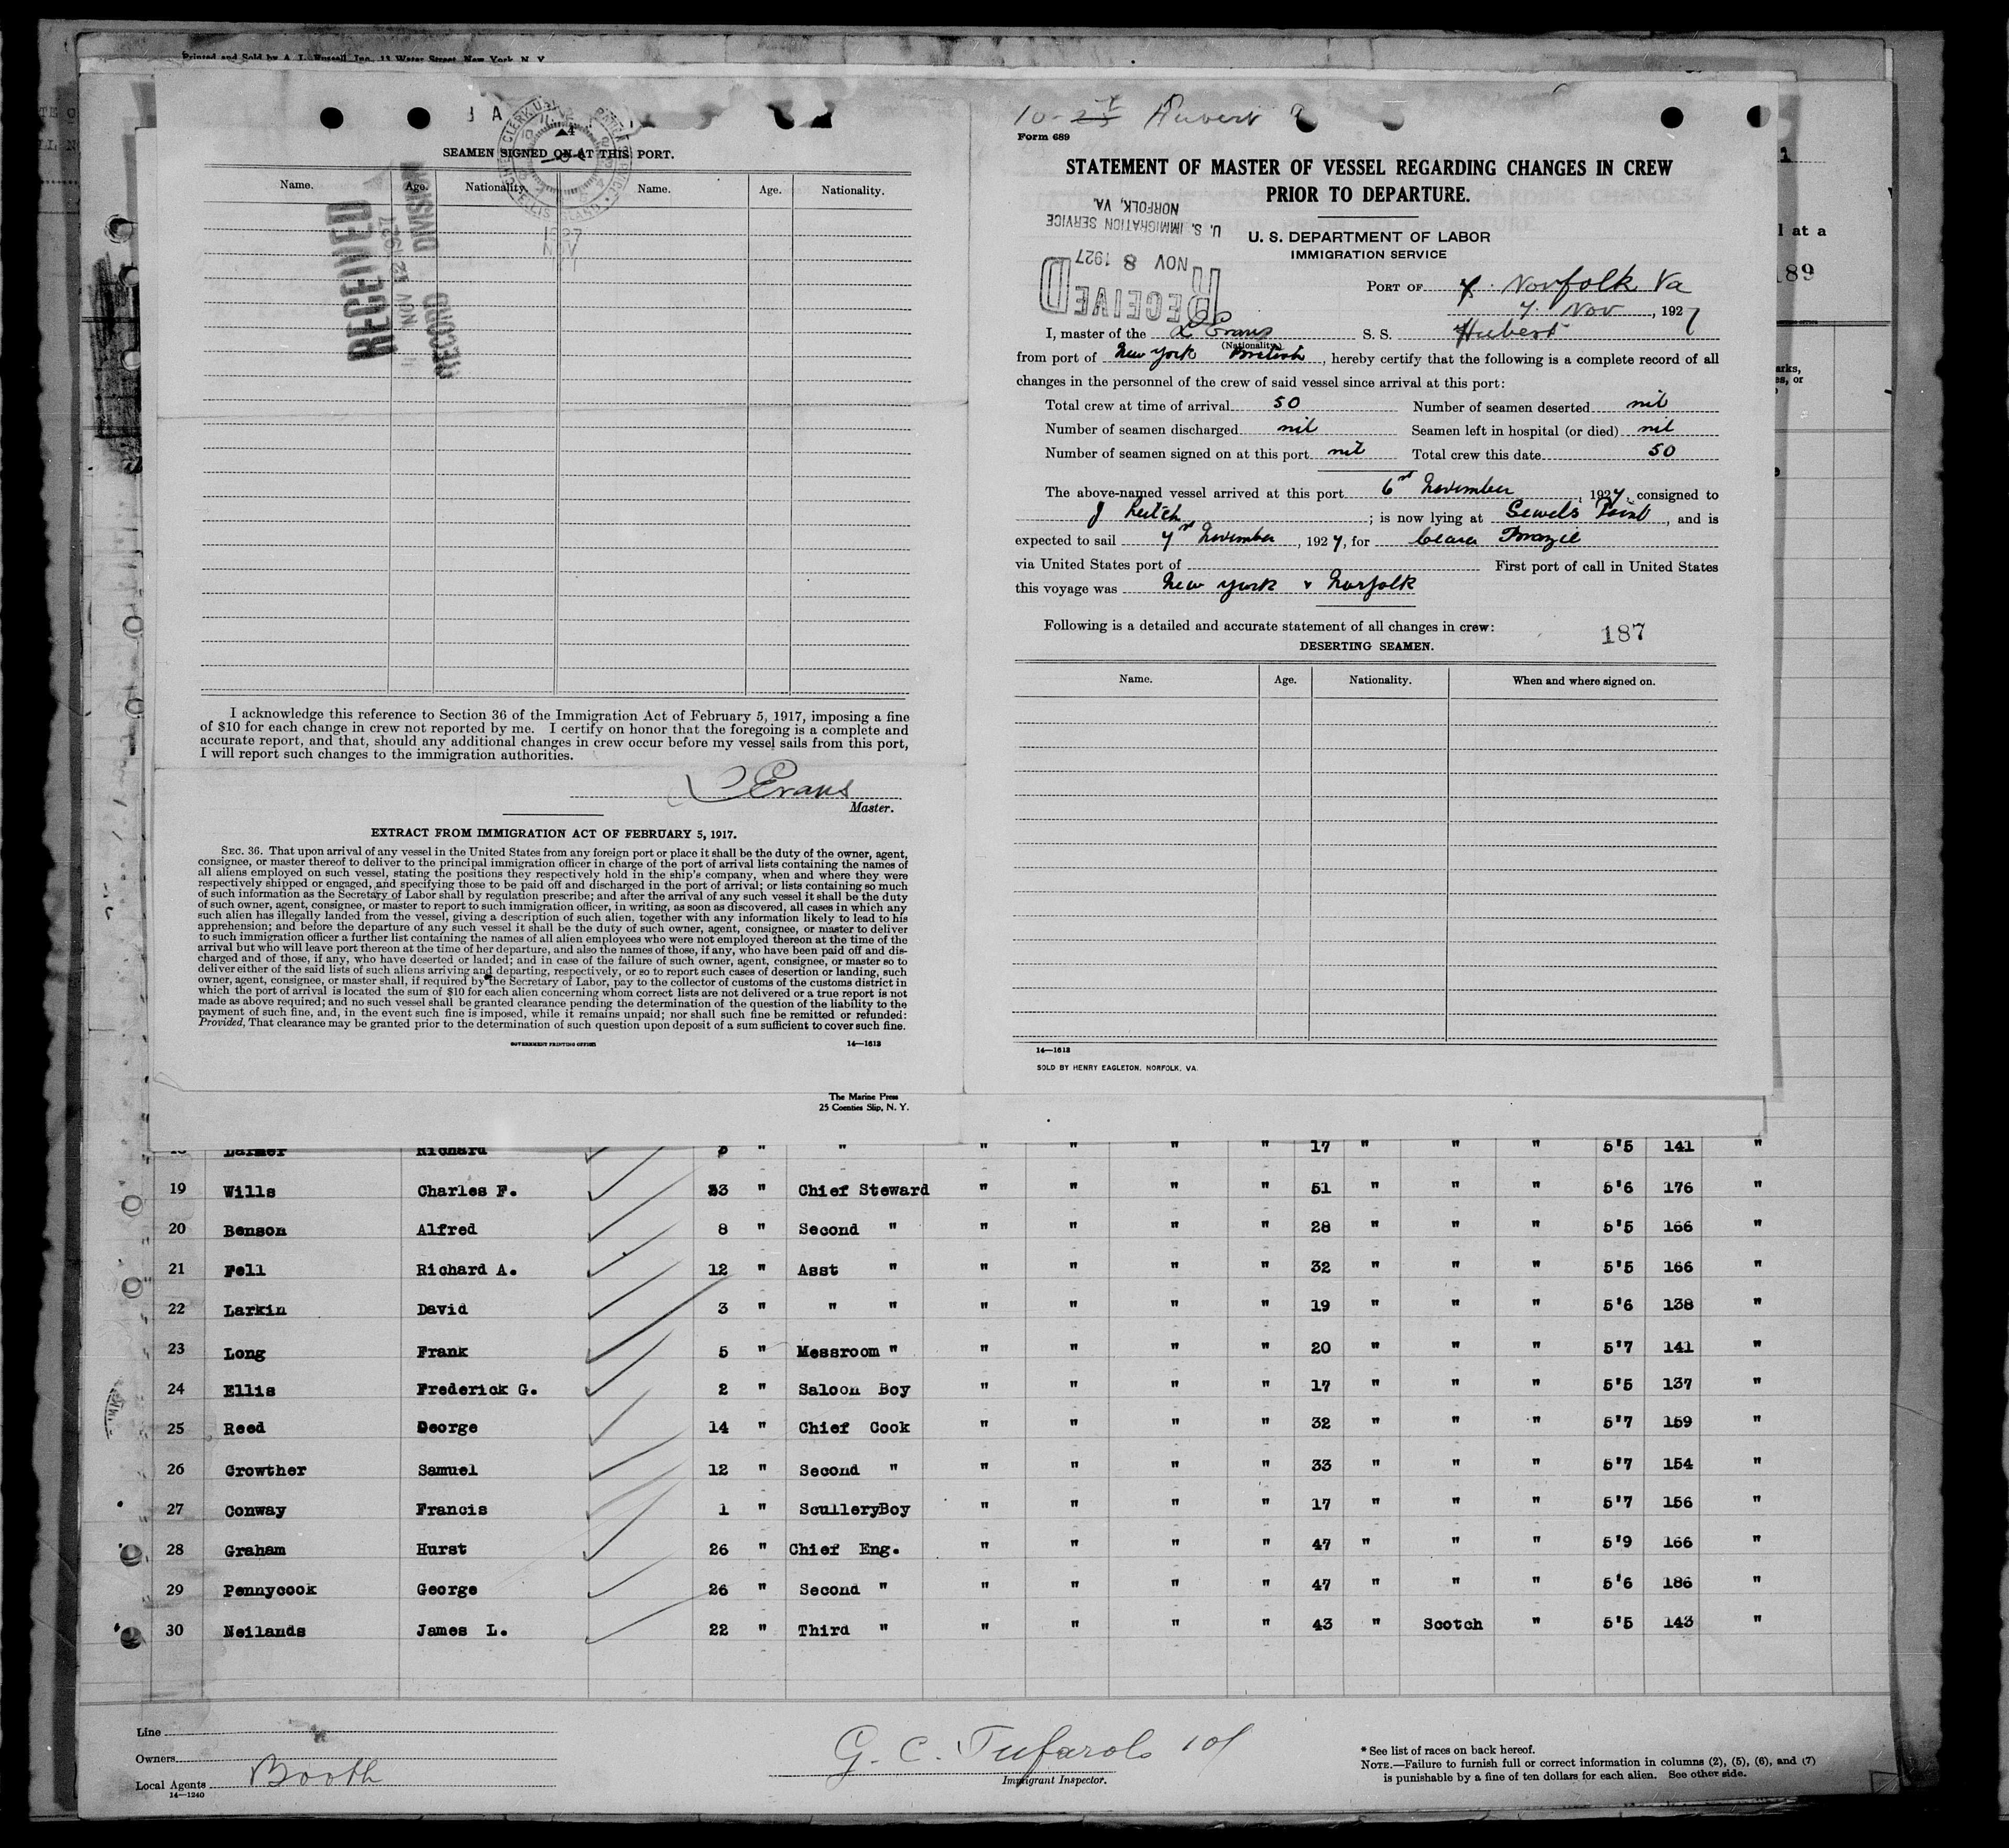 Printed and Sold by A. L. Russell, Inc., 13 Water Street, New York, N. Y.
SEAMEN SIGNED ON AT THIS PORT.
Name. Age. Nationality. Name. Age. Nationality.
RECEIVED
NOV 12 1927
RECORD DIVISION
1927
NOV
I acknowledge this reference to Section 36 of the Immigration Act of February 5, 1917, imposing a fine
of $10 for each change in crew not reported by me. I certify on honor that the foregoing is a complete and
accurate report, and that, should any additional changes in crew occur before my vessel sails from this port,
I will report such changes to the immigration authorities.
Evans
Master.
EXTRACT FROM IMMIGRATION ACT OF FEBRUARY 5, 1917.
SEC. 36. That upon arrival of any vessel in the United States from any foreign port or place it shall be the duty of the owner, agent,
consignee, or master thereof to deliver to the principal immigration officer in charge of the port of arrival lists containing the names of
all aliens employed on such vessel, stating the positions they respectively hold in the ship's company, when and where they were
respectively shipped or engaged, and specifying those to be paid off and discharged in the port of arrival; or lists containing so much
of such information as the Secretary of Labor shall by regulation prescribe; and after the arrival of any such vessel it shall be the duty
of such owner, agent, consignee, or master to report to such immigration officer, in writing, as soon as discovered, all cases in which any
such alien has illegally landed from the vessel, giving a description of such alien, together with any information likely to lead to his
apprehension; and before the departure of any such vessel it shall be the duty of such owner, agent, consignee, or master to deliver
to such immigration officer a further list containing the names of all alien employees who were not employed thereon at the time of the
arrival but who will leave port thereon at the time of her departure, and also the names of those, if any, who have been paid off and dis-
charged and of those, if any, who have deserted or landed; and in case of the failure of such owner, agent, consignee, or master so to
deliver either of the said lists of such aliens arriving and departing, respectively, or so to report such cases of desertion or landing, such
owner, agent, consignee, or master shall, if required by the Secretary of Labor, pay to the collector of customs of the customs district in
which the port of arrival is located the sum of $10 for each alien concerning whom correct lists are not delivered or a true report is not
made as above required; and no such vessel shall be granted clearance pending the determination of the question of the liability to the
payment of such fine, and, in the event such fine is imposed, while it remains unpaid; nor shall such fine be remitted or refunded:
Provided, That clearance may be granted prior to the determination of such question upon deposit of a sum sufficient to cover such fine.
GOVERNMENT PRINTING OFFICE 14—1613
The Marine Press
25 Coenties Slip, N. Y.
Form 689
STATEMENT OF MASTER OF VESSEL REGARDING CHANGES IN CREW
PRIOR TO DEPARTURE.
U. S. IMMIGRATION SERVICE
NORFOLK, VA.
NOV 8 1927
RECEIVED
U. S. DEPARTMENT OF LABOR
IMMIGRATION SERVICE
PORT OF Norfolk Va
7. Nov, 1927
I, master of the L Evans S. S. Hubert
(Nationality)
from port of New York British, hereby certify that the following is a complete record of all
changes in the personnel of the crew of said vessel since arrival at this port:
Total crew at time of arrival 50 Number of seamen deserted nil
Number of seamen discharged nil Seamen left in hospital (or died) nil
Number of seamen signed on at this port nil Total crew this date 50
The above-named vessel arrived at this port 6 November, 1927, consigned to
J ; is now lying at Sewels Point, and is
expected to sail 7 November, 1927, for Ceara Brazil
via United States port of First port of call in United States
this voyage was New York & Norfolk
Following is a detailed and accurate statement of all changes in crew:
187
DESERTING SEAMEN.
Name. Age. Nationality. When and where signed on.
14—1613
SOLD BY HENRY EAGLETON, NORFOLK, VA.
1
l at a
89
arks,
es, or
Larmer Richard " " " " " " 17 " " " 5'5 141 "
19 Wills Charles F. 33 " Chief Steward " " " " 51 " " " 5'6 176 "
20 Benson Alfred 8 " Second " " " " " 28 " " " 5'5 166 "
21 Fell Richard A. 12 " Asst " " " " " 32 " " " 5'5 166 "
22 Larkin David 3 " " " " " " " 19 " " " 5'6 138 "
23 Long Frank 5 " Messroom " " " " " 20 " " " 5'7 141 "
24 Ellis Frederick G. 2 " Saloon Boy " " " " 17 " " " 5'5 137 "
25 Reed George 14 " Chief Cook " " " " 32 " " " 5'7 159 "
26 Growther Samuel 12 " Second " " " " " 33 " " " 5'7 154 "
27 Conway Francis 1 " SculleryBoy " " " " 17 " " " 5'7 156 "
28 Graham Hurst 26 " Chief Eng. " " " " 47 " " " 5'9 166 "
29 Pennycook George 26 " Second " " " " " 47 " " " 5'6 186 "
30 Neilands James L. 22 " Third " " " " " 43 " Scotch " 5'5 143 "
Line
Owners
Local Agents Booth
14—1240
G. C.
Immigrant Inspector.
* See list of races on back hereof.
NOTE.—Failure to furnish full or correct information in columns (2), (5), (6), and (7)
is punishable by a fine of ten dollars for each alien. See other side.